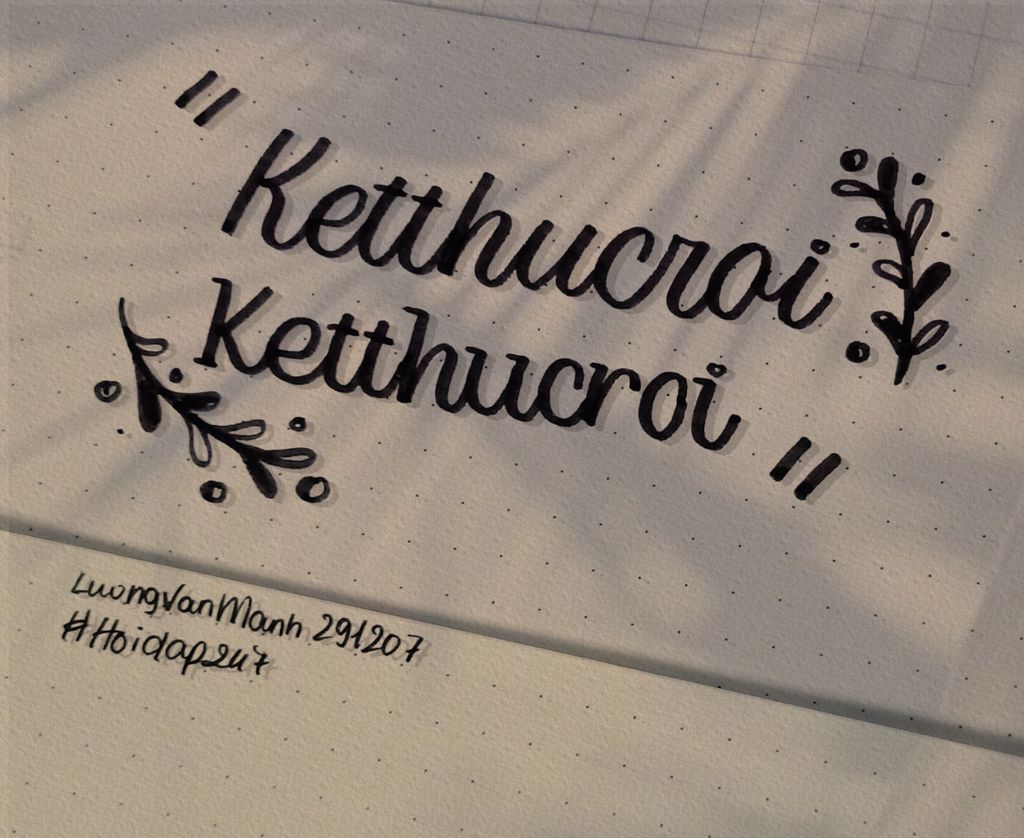 " Ketthucroi
Ketthucroi "
LuongVanManh 291207
#Hoidap247